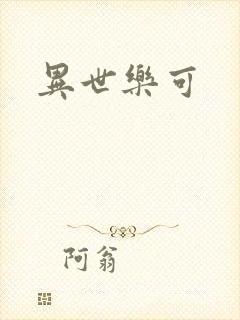 異世樂可
阿翁